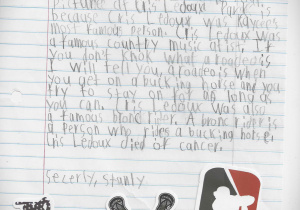 Picture of Cris Ledoux Park is
because Cris Ledoux was Kaycees
most famous person. Cris Ledoux was
a famous country music artist. If
you don't knok what a rodeo is
I will tell you, a rodeo is when
you get on a bucking horse and you
try to stay on as long as
you can. Cris Ledoux was also
a famous bronc rider. A bronc rider is
a person who rides a bucking horse.
Cris Ledoux died of cancer.
Secerly, stanly